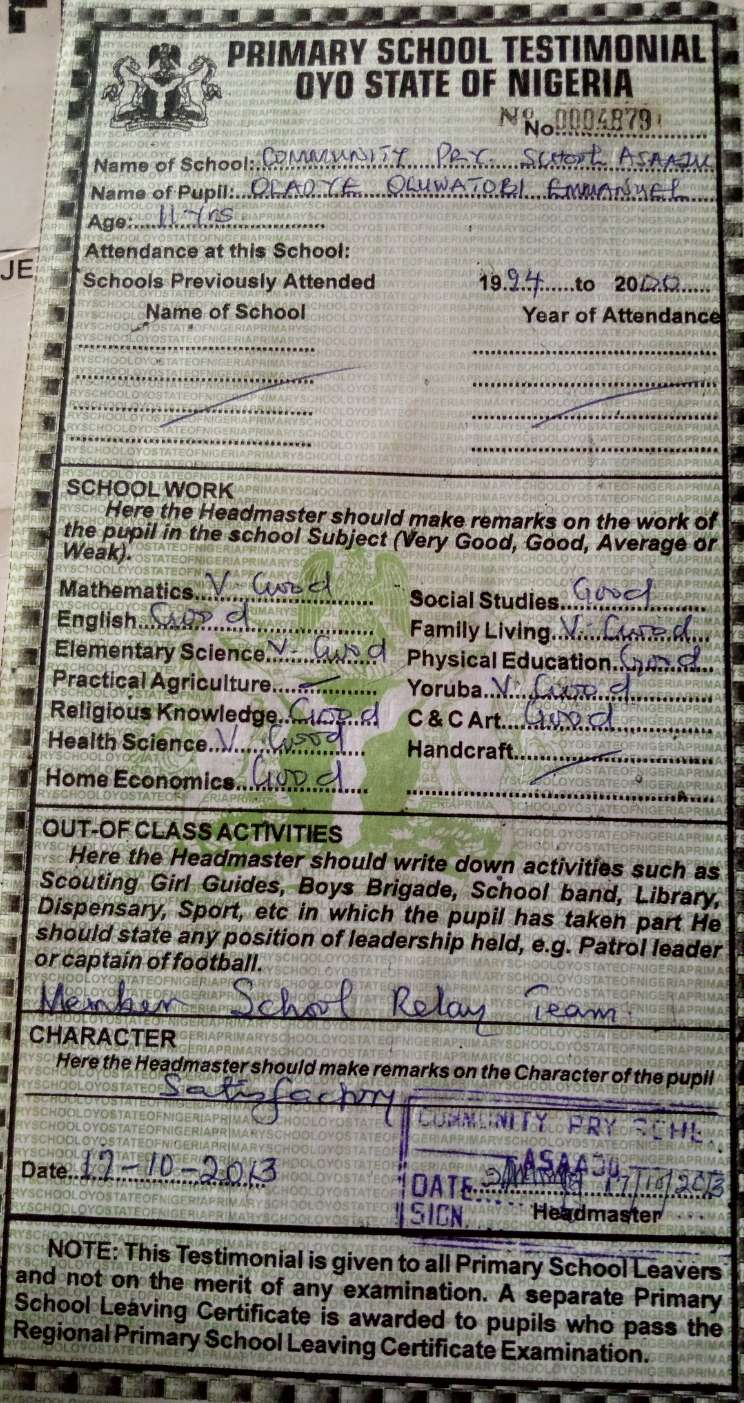 PRIMARY SCHOOL TESTIMONIAL
OYO STATE OF NIGERIA
No 0004879
No:
Name of School: COMMUNITY PRY. SCHOOL ASAAJU
Name of Pupil: OLAOYE OLUWATOBI EMMANUEL
Age: 11 Yrs
Attendance at this School:
JE
Schools Previously Attended 1994 to 2000
Name of School Year of Attendance
SCHOOL WORK
Here the Headmaster should make remarks on the work of
the pupil in the school Subject (Very Good, Good, Average or
Weak).
Mathematics V. Good Social Studies Good
English Good Family Living V. Good
Elementary Science V. Good Physical Education Good
Practical Agriculture Yoruba V. Good
Religious Knowledge Good C & C Art Good
Health Science V. Good Handcraft
Home Economics Good
OUT-OF CLASS ACTIVITIES
Here the Headmaster should write down activities such as
Scouting Girl Guides, Boys Brigade, School band, Library,
Dispensary, Sport, etc in which the pupil has taken part He
should state any position of leadership held, e.g. Patrol leader
or captain of football.
Member School Relay Team.
CHARACTER
Here the Headmaster should make remarks on the Character of the pupil
Satisfactory
COMMUNITY PRY SCHL.
ASAAJU
Date 17-10-2013
DATE 17/10/2013
SIGN Headmaster
NOTE: This Testimonial is given to all Primary School Leavers
and not on the merit of any examination. A separate Primary
School Leaving Certificate is awarded to pupils who pass the
Regional Primary School Leaving Certificate Examination.